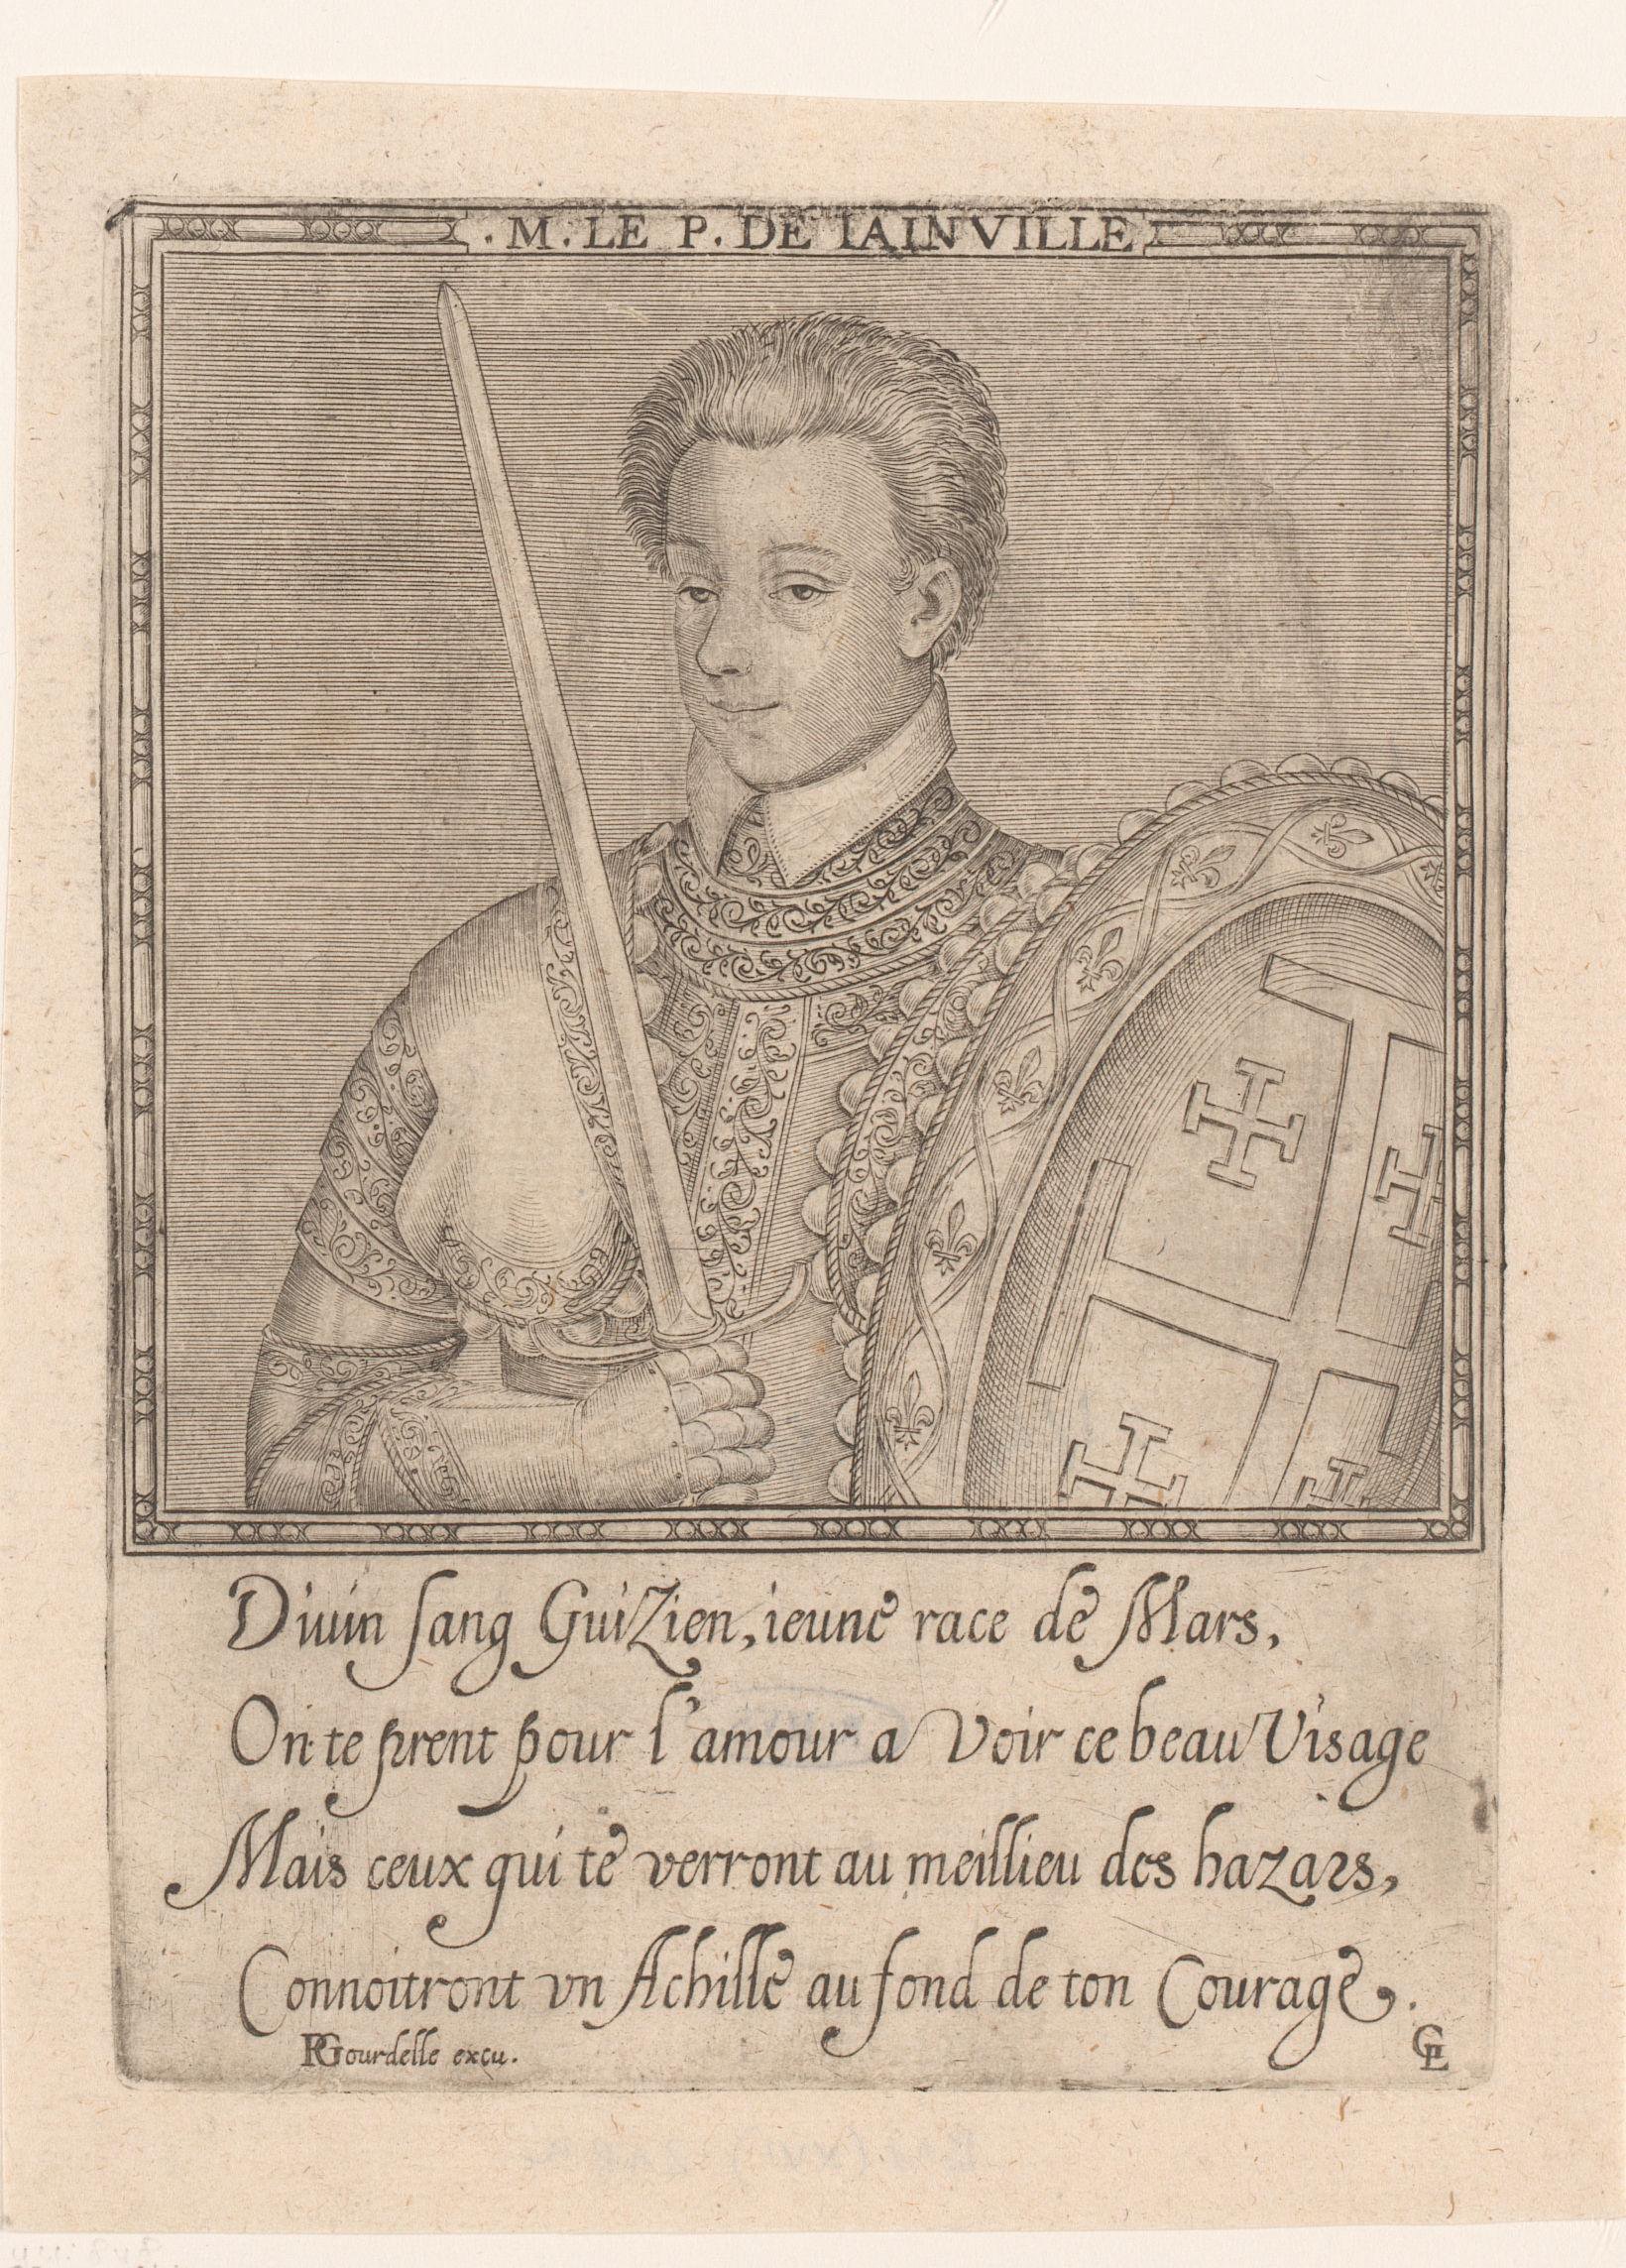 . M. LE P. DE IAINVILLE
Diuin sang GuiZien, ieune race de Mars,
On te prent pour l'amour a Voir ce beau Visage
Mais ceux qui te verront au meillieu des hazars,
Connoitront vn Achille au fond de ton Courage.
PGourdelle excu.